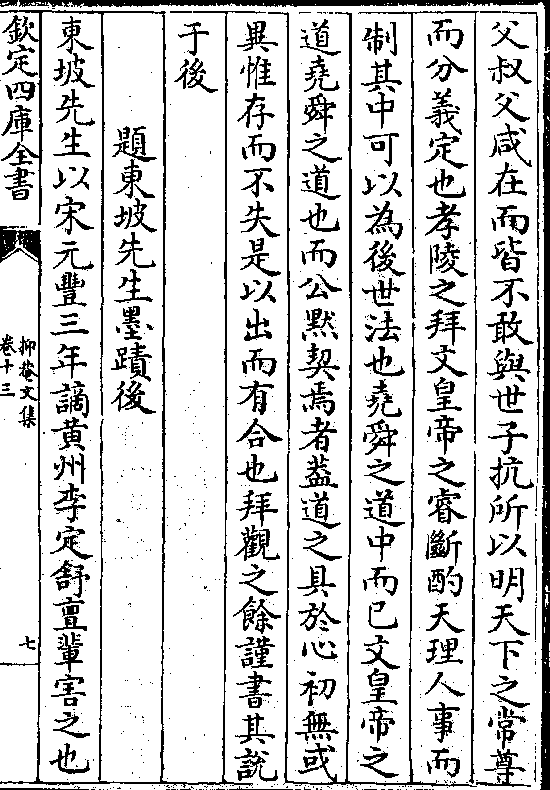 父叔父咸在而皆不敢與世子抗所以明天下之常尊
而分義定也孝陵之拜文皇帝之睿斷酌天理人事而
制其中可以為後世法也堯舜之道中而已文皇帝之
道堯舜之道也而公黙契焉者葢道之具於心初無或
異惟存而不失是以出而有合也拜觀之餘謹書其説
于後
題東坡先生墨蹟後
東坡先生以宋元豐三年謫黄州李定舒亶輩害之也
欽定四庫全書
抑菴文集
卷十三
七